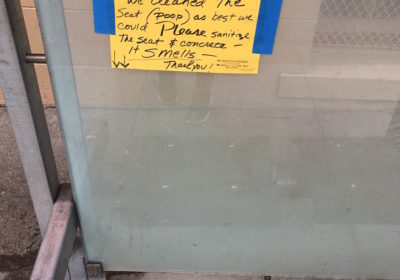 We cleaned The
Seat (poop) as best we
could Please sanitize
the seat & concrete –
It Smells –
Thank you!